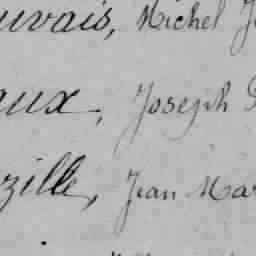 uvais, Michel J
aux, Joseph
zille, Jean Mar